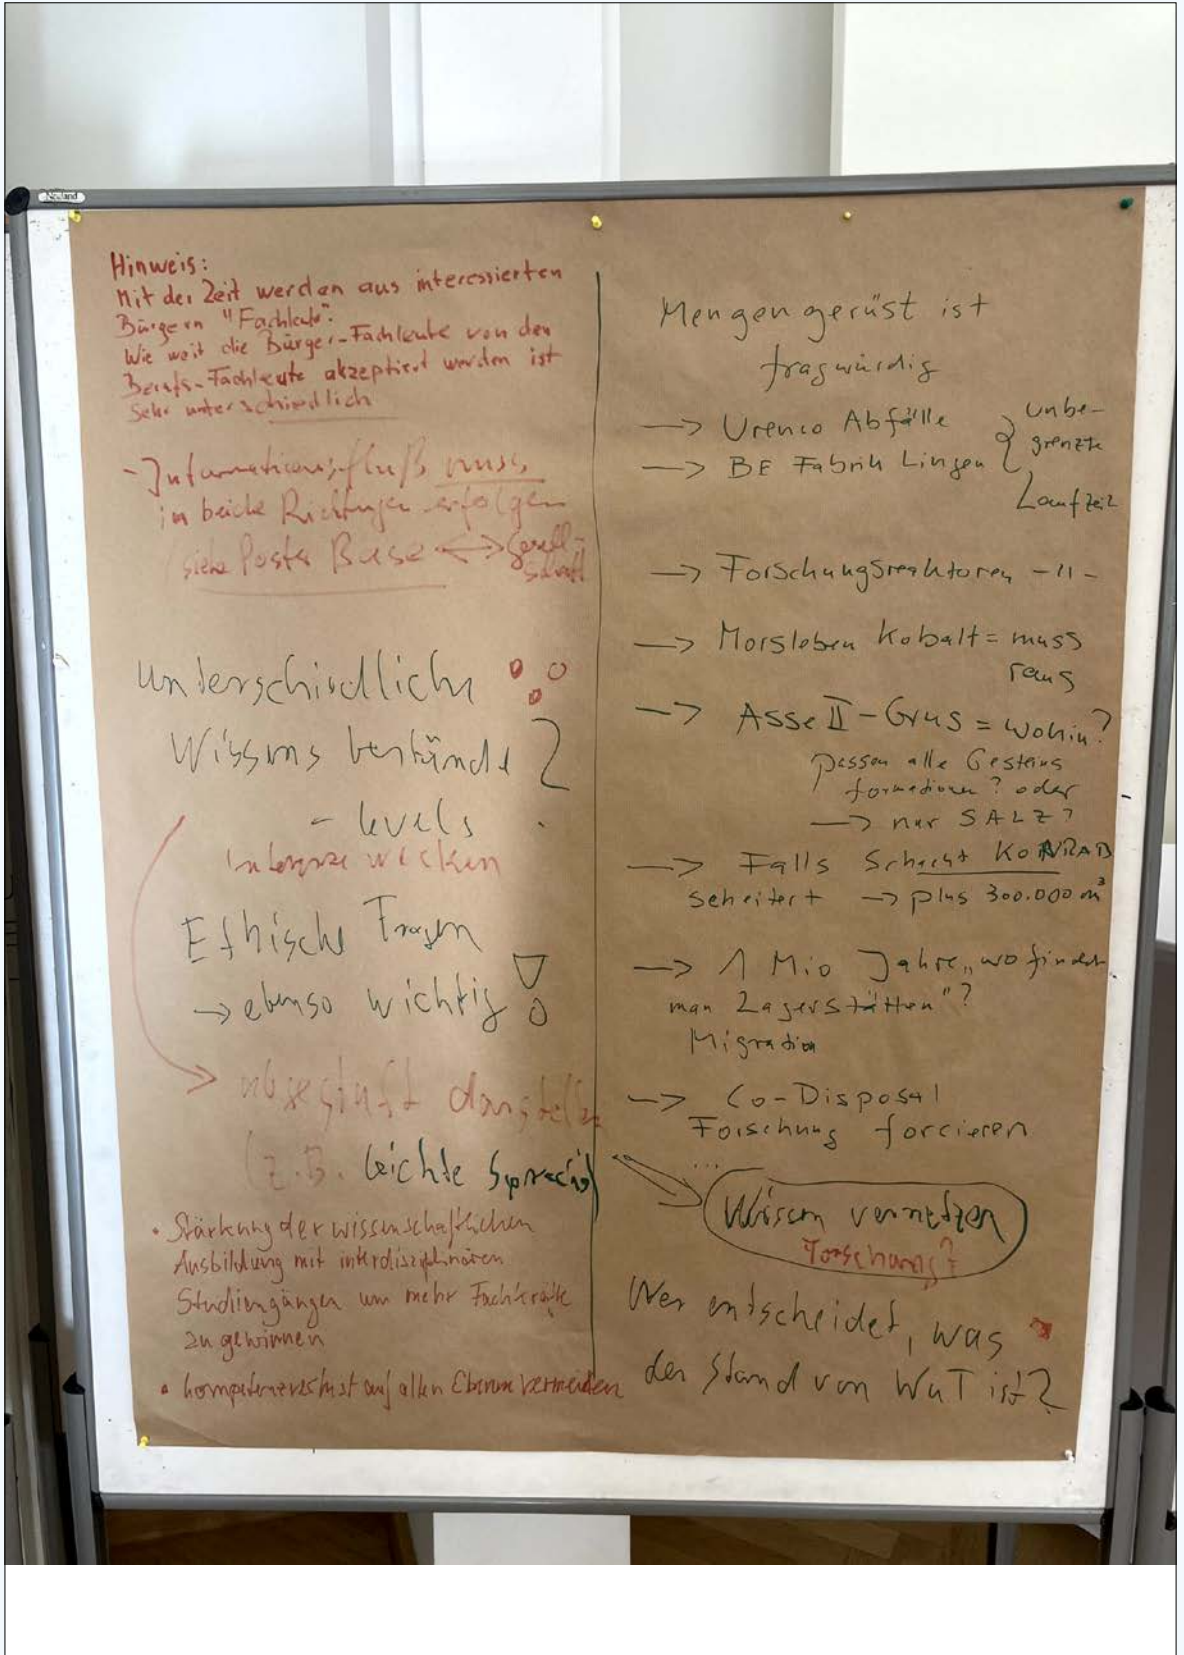 Neuland
Hinweis:
Mit der Zeit werden aus interessierten
Bürgern "Fachleute".
Wie weit die Bürger-Fachleute von den
Berufs-Fachleute akzeptiert werden ist
sehr unterschiedlich
- Informationsfluß muss
in beide Richtungen erfolgen
(siehe Poster Base <-> Gesell-
schaft
unterschiedliche
Wissensbestände?
- levels
Interesse wecken
Ethische Fragen
→ ebenso wichtig!
→ abgestuft darstellen
(z.B. leichte Sprache)
• Stärkung der wissenschaftlichen
Ausbildung mit interdisziplinären
Studiengängen um mehr Fachkräfte
zu gewinnen
• Kompetenzverlust auf allen Ebenen vermeiden
Mengengerüst ist
fragwürdig
→ Urenco Abfälle
→ BE Fabrik Lingen
} unbe-
grenzte
Laufzeit
→ Forschungsreaktoren -11-
→ Morsleben Kobalt = muss
raus
→ Asse II - Grus = wohin?
passen alle Gesteins
formationen? oder
→ nur SALZ?
→ Falls Schacht KONRAD
scheitert → plus 300.000 m³
→ 1 Mio Jahre „wo findet
man Lagerstätten"?
Migration
→ Co-Disposal
Forschung forcieren
...
Wissen vernetzen
Forschung?
Wer entscheidet, was
der Stand von WuT ist?